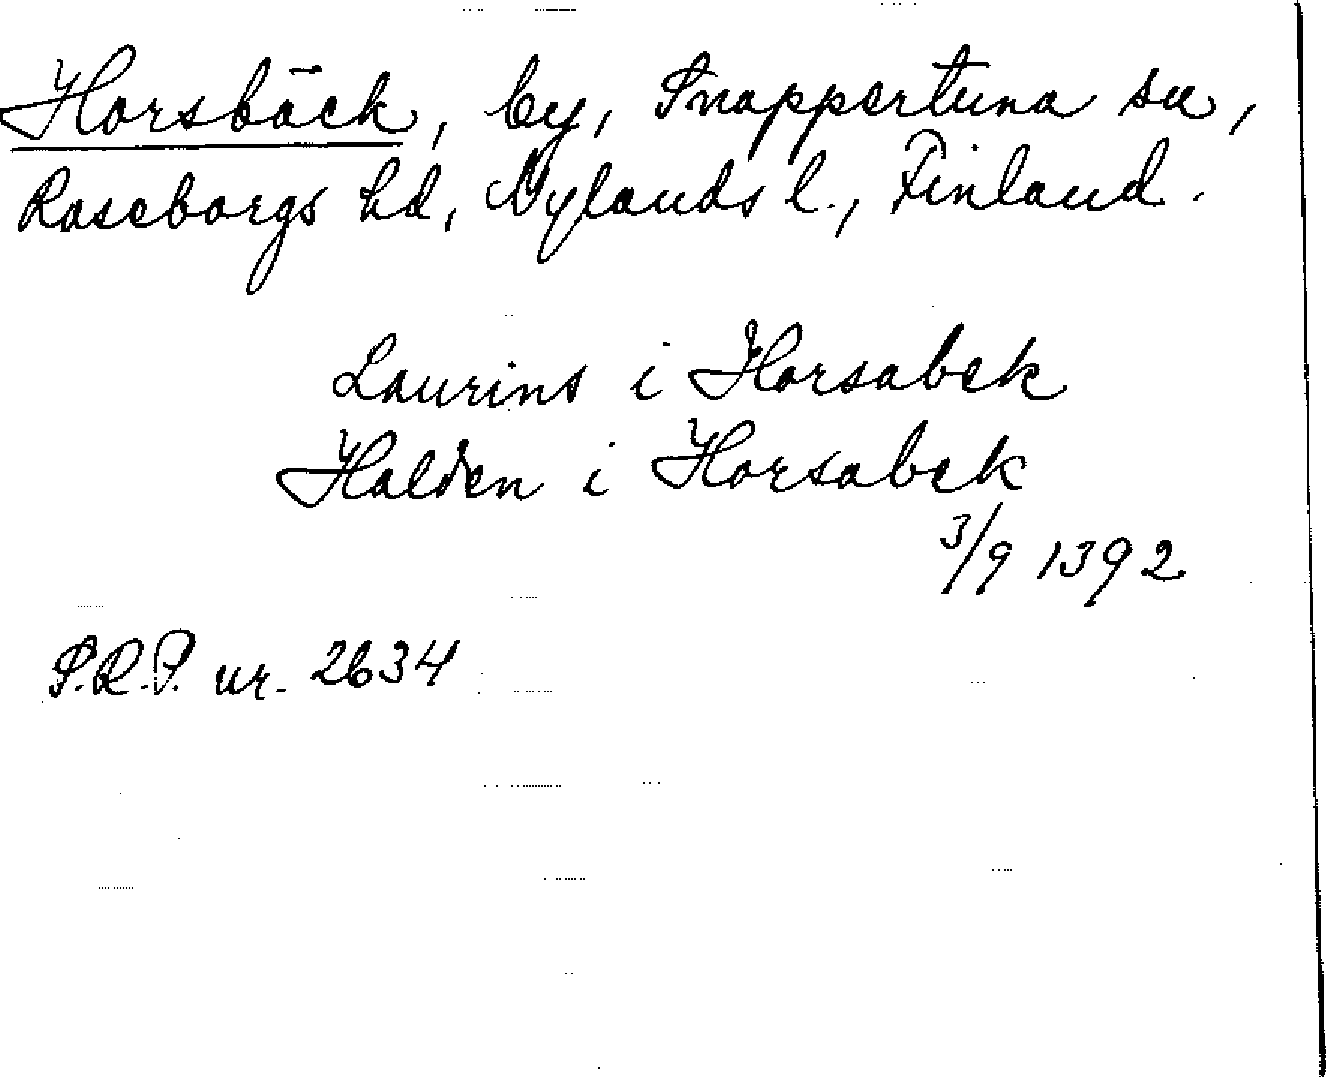 Horsbäck, by, Snappertuna sn,
Raseborgs hd, Nylands l., Finland.
Laurins i Horsabek
Halden i Horsabek
3/9 1392
S.R.P. nr. 2634